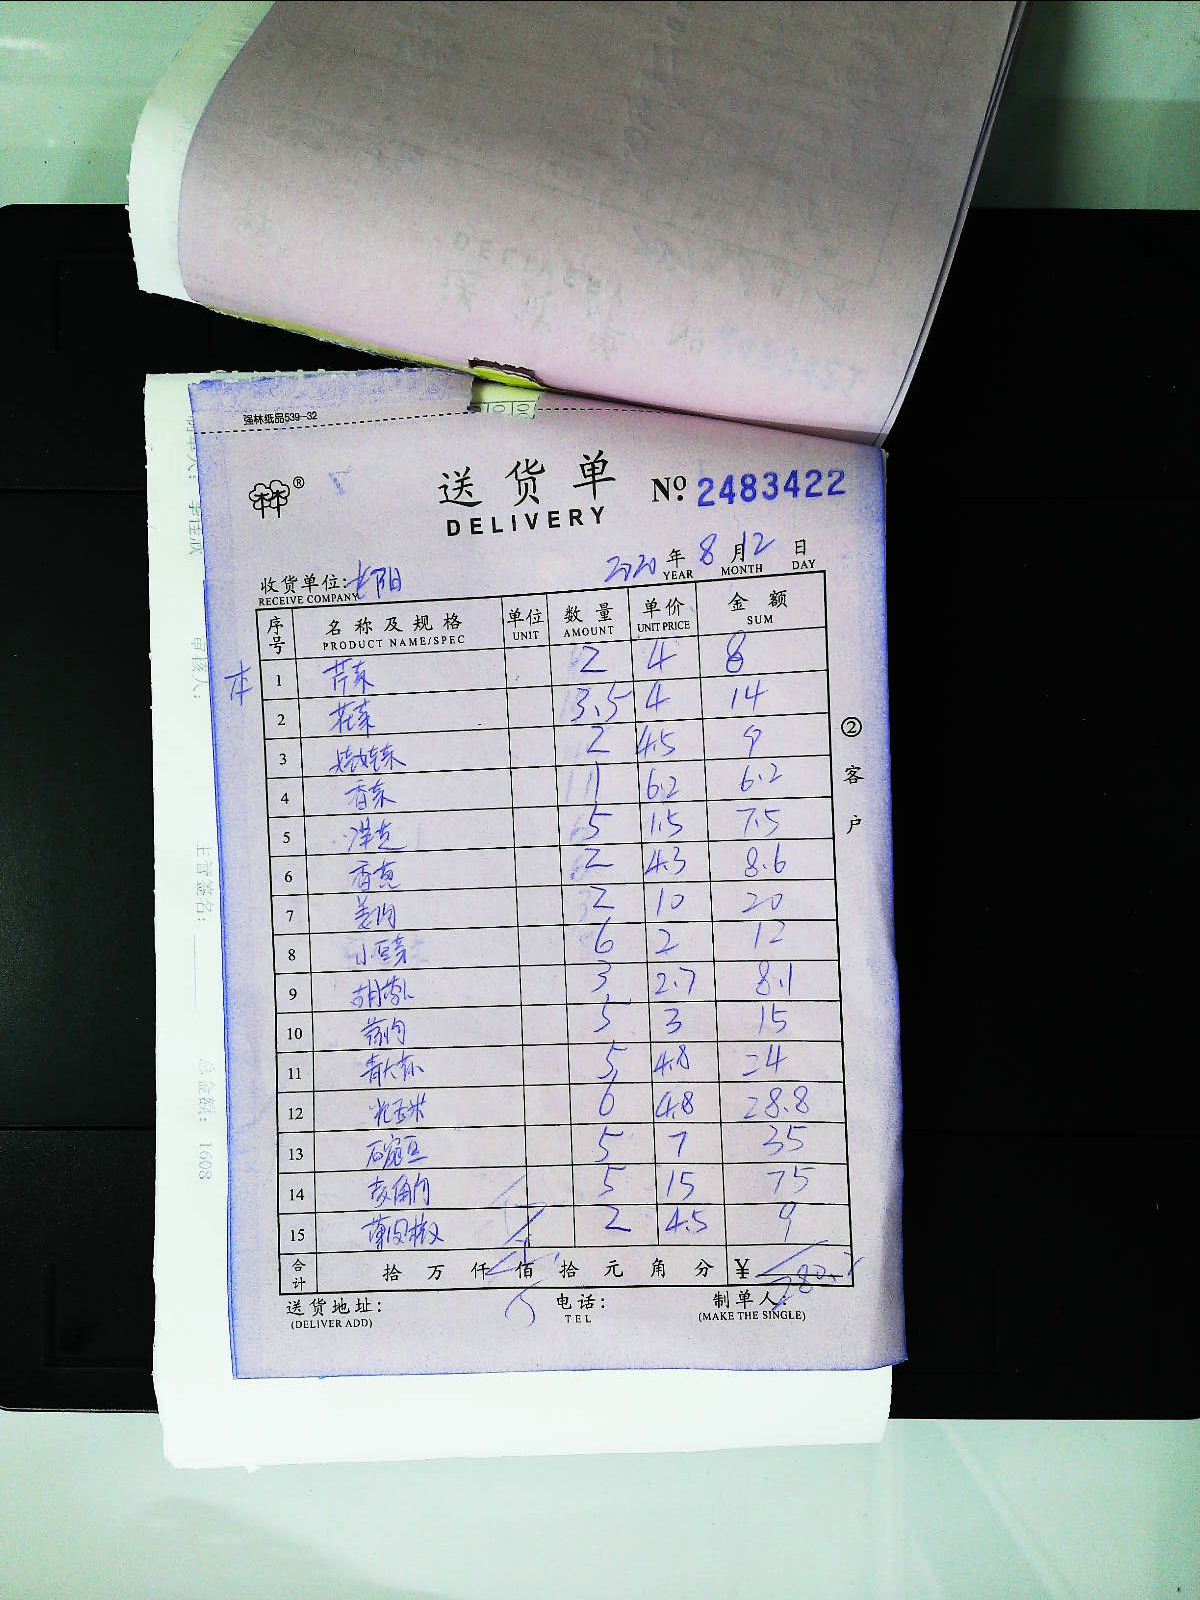 强林纸品539-32
送货单 No. 2483422
DELIVERY
2020 年 8 月 12 日
YEAR MONTH DAY
收货单位:
RECEIVE COMPANY
序号 名称及规格 单位 数量 单价 金额
PRODUCT NAME/SPEC UNIT AMOUNT UNIT PRICE SUM
本
1 芹菜 2 4 8
2 花菜 3.5 4 14
3 娃娃菜 2 4.5 9
4 香菜 1 6.2 6.2
5 洋芋 5 1.5 7.5
6 香葱 2 4.3 8.6
7 姜肉 2 10 20
8 小豆芽 6 2 12
9 胡萝卜 3 2.7 8.1
10 5 3 15
11 5 4.8 24
12 6 4.8 28.8
13 5 7 35
14 5 15 75
15 2 4.5 9
合计 拾 万 仟 佰 拾 元 角 分 ¥
送货地址: 电话: 制单人:
(DELIVER ADD) TEL (MAKE THE SINGLE)
②客户